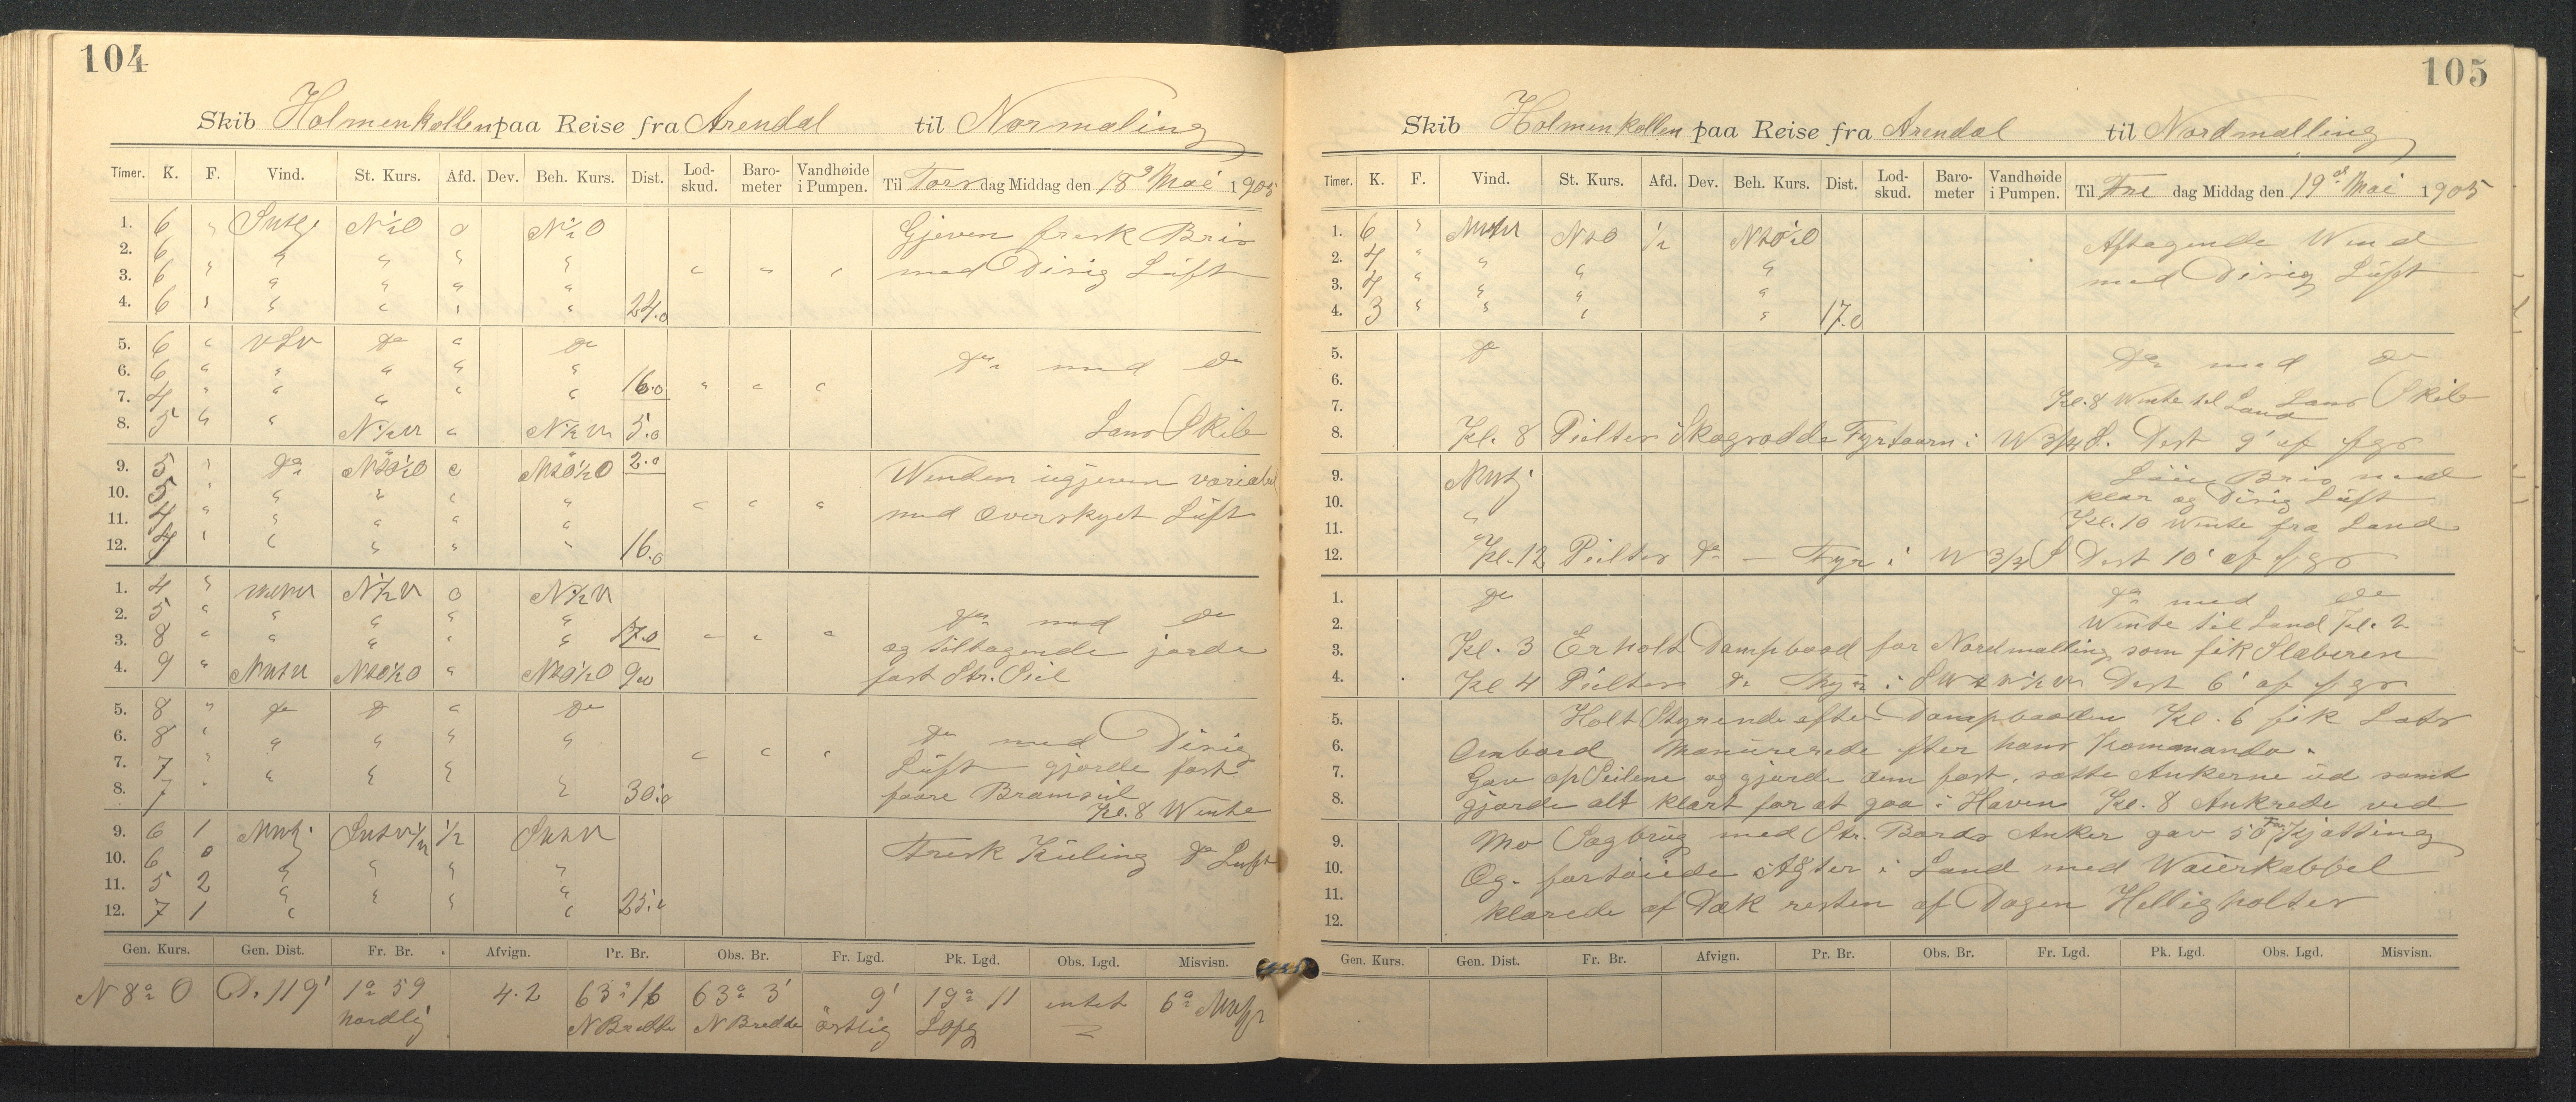 104
Skib Holmenkollen paa Reise fra Arendal til Normaling
Timer. K. F. Vind. St. Kurs. Afd. Dev. Beh. Kurs. Dist. Lod-skud. Baro-meter Vandhøide i Pumpen. Til Torsdag Middag den 18de Mai 1905
1. 6 " Sutlg N½O 0 N½O Gjeven fresk Bris
2. 6 " " " " "
3. 6 " " " " " " " " med Disig Lüft
4. 6 " " " " " 24.0
5. 6 " VSV do " do
6. 6 " " " " " do med do
7. 4 " " " " " 16.0 " " "
8. 5 " " N½W " N½W 5.0 Lans Skib
9. 5 " do NtO½O " NtO½O 2.0 Winden ugjeven variabel
10. 5 " " " " "
11. 4 " " " " " " " " med Overskyet Lüft
12. 4 " " " " " 16.0
1. 4 " N½W 0 N½W
2. 5 " " " " " do med do
3. 8 " " " " " 17.0 " " " og tiltagende jorde
4. 9 " NtO½O " NtO½O 9.0 fast Str. Seil
5. 8 " do do " do
6. 8 " " " " " do med Disig
7. 7 " " " " " " " " Lüft gjorde fast
8. 7 " " " " 30.0 faare Bramseil
Kl. 8 Wente
9. 6 1 ½
10. 6 0 " " " " Fresk Küling do Luft
11. 5 2 " " " "
12. 7 1 " " " " 25.0
Gen. Kurs. Gen. Dist. Fr. Br. Afvign. Pr. Br. Obs. Br. Fr. Lgd. Pk. Lgd. Obs. Lgd. Misvisn.
N 8o O D. 119' 1o 59 4.2 63o 16 63o 3' 9' 19o 11 intet 6o
Nordlig N Bredde N Bredde östlig
105
Skib Holmenkollen paa Reise fra Arendal til Nordmalling
Timer. K. F. Vind. St. Kurs. Afd. Dev. Beh. Kurs. Dist. Lod-skud. Baro-meter Vandhøide i Pumpen. Til Fre dag Middag den 19de Mai 1905
1. 6 " NtO ½ NtO½O Aftagende Wind
2. 4 " " " "
3. 4 " " " " med Disig Lüft
4. 3 " " " " 17.0
5. do do med do
6.
7. Kl. 8 Wente til Land Lans Skib
8. Kl. 8 Peilter Skagsodde Fyrtaarn i W 3/4 S. Dist 9' af fgs
9. Bris med
10. klar og Disig Lüft
11. " Kl. 10 Wente fra Land
12. Kl. 12 Peilter do — Fyr i Dist 10' af fgs
1. do do med do
2. Wente til Land Kl. 2
3. Kl. 3 Erholt Dampbaad for Nordmalling som fik Slæberen
4. Kl 4 Peilter do Fyr i Dist 6' af fgs
5. Holt Styrende efter Dampbaaden Kl. 6 fik Lods
6. Ombord Manurerede efter hans Kommando.
7. Gav op Seilene og gjorde dem fast. satte Ankerne ud samt
8. gjorde alt klart for at gaa i Haven Kl. 8 Ankrede ved
9. Mo Sagbrug med Str. Bords Anker gav 50 Fm Kjætting
10. Og fortøiede Agter i Land med Waierkabbel
11. klarede af Dæk resten af Dagen Helligholtes
12.
Gen. Kurs. Gen. Dist. Fr. Br. Afvign. Pr. Br. Obs. Br. Fr. Lgd. Pk. Lgd. Obs. Lgd. Misvisn.